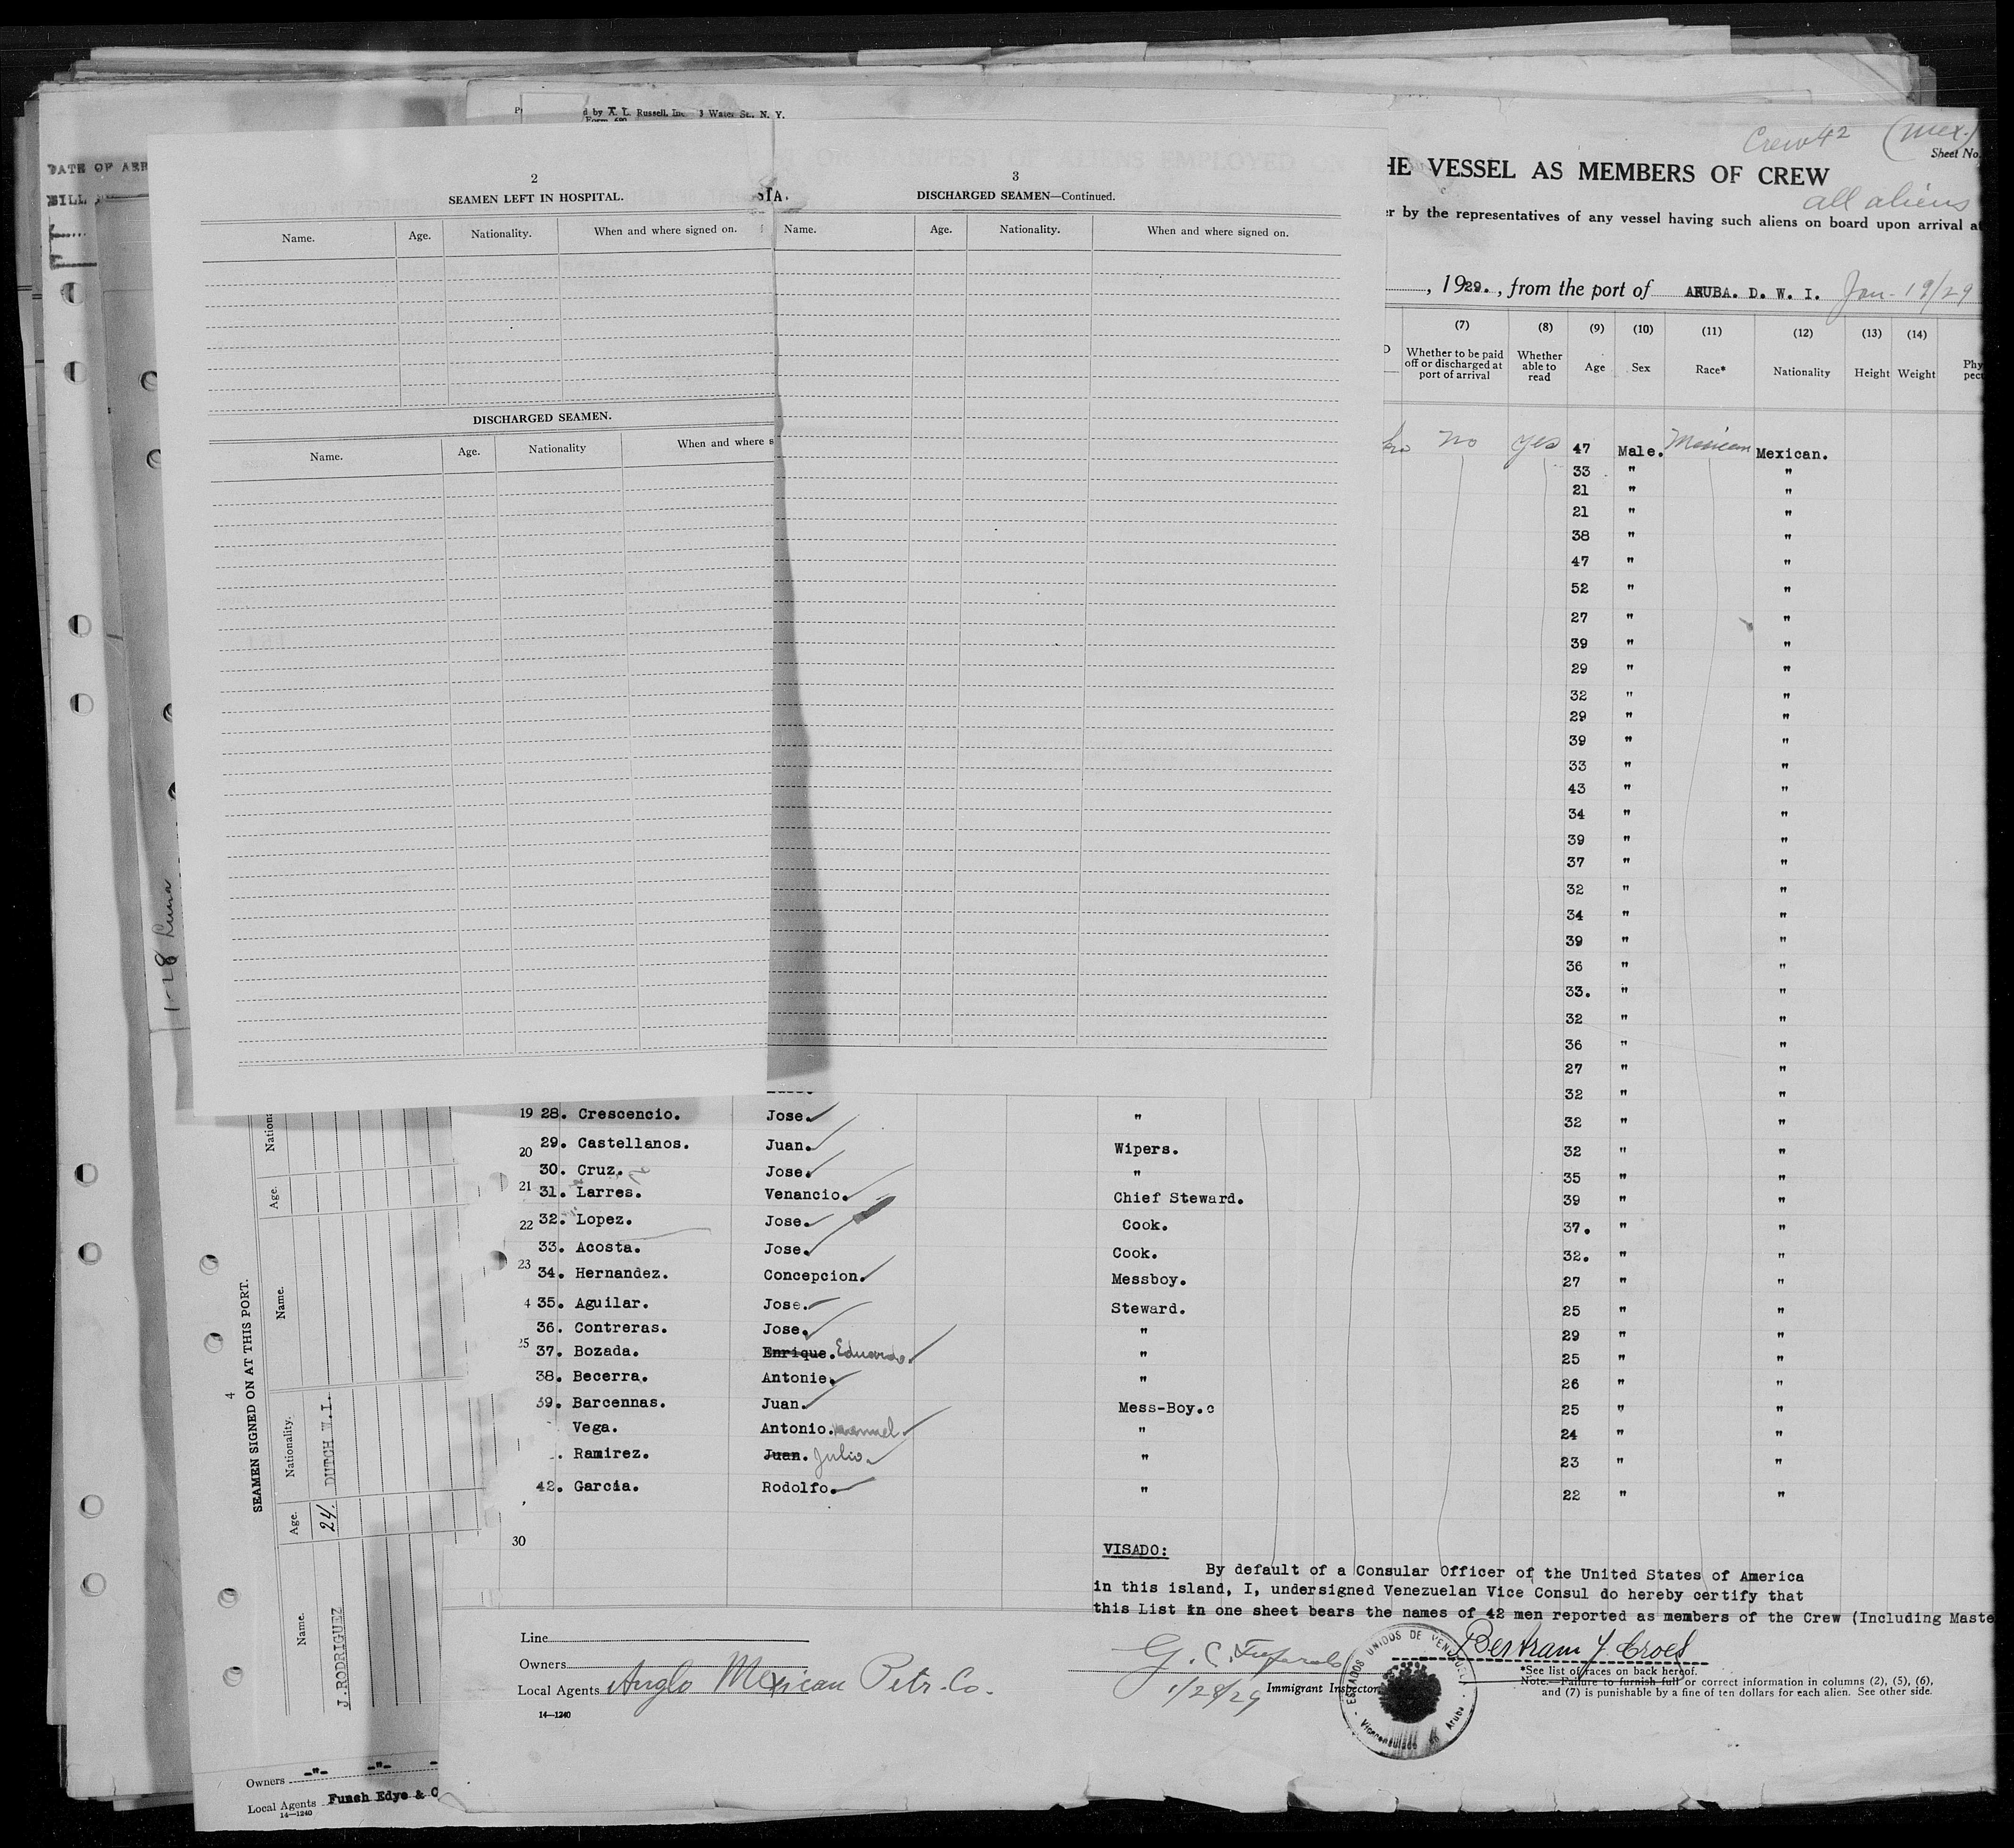 d by X. L. Russell, Inc. Water St., N. Y.
DATE OF ARR
2
SEAMEN LEFT IN HOSPITAL.
Name. Age. Nationality. When and where signed on.
DISCHARGED SEAMEN.
Name. Age. Nationality When and where s
SIA.
3
DISCHARGED SEAMEN—Continued.
Name. Age. Nationality. When and where signed on.
Crew 42 (Mex.)
Sheet No.
HE VESSEL AS MEMBERS OF CREW
all aliens
er by the representatives of any vessel having such aliens on board upon arrival at
, 1929. , from the port of ARUBA. D. W. I. Jan. 19/29
(7) (8) (9) (10) (11) (12) (13) (14)
Whether to be paid off or discharged at port of arrival Whether able to read Age Sex Race* Nationality Height Weight Phy pecu
no yes 47 Male. Mexican Mexican.
33 " "
21 " "
21 " "
38 " "
47 " "
52 " "
27 " "
39 " "
29 " "
32 " "
29 " "
39 " "
33 " "
43 " "
34 " "
39 " "
37 " "
32 " "
34 " "
39 " "
36 " "
33. " "
32 " "
36 " "
27 " "
32 " "
19 28. Crescencio. Jose. " 32 " "
20 29. Castellanos. Juan. Wipers. 32 " "
30. Cruz. Jose. " 35 " "
21 31. Larres. Venancio. Chief Steward. 39 " "
22 32. Lopez. Jose. Cook. 37. " "
33. Acosta. Jose. Cook. 32. " "
23 34. Hernandez. Concepcion. Messboy. 27 " "
4 35. Aguilar. Jose. Steward. 25 " "
36. Contreras. Jose. " 29 " "
25 37. Bozada. Enrique. Eduardo. " 25 " "
38. Becerra. Antonie. " 26 " "
39. Barcennas. Juan. Mess-Boy.c 25 " "
Vega. Antonio. manuel. " 24 " "
. Ramirez. Juan. Julio. " 23 " "
42. Garcia. Rodolfo. " 22 " "
30
VISADO:
By default of a Consular Officer of the United States of America
in this island, I, undersigned Venezuelan Vice Consul do hereby certify that
this List in one sheet bears the names of 42 men reported as members of the Crew (Including Maste
Line
Owners
Local Agents Anglo Mexican Petr. Co.
14—1240
G. C.
1/28/29 Immigrant Inspector
ESTADOS UNIDOS DE VENEZUELA
Viceconsulado Aruba
Bertram J. Croes
*See list of races on back hereof.
Note.—Failure to furnish full or correct information in columns (2), (5), (6),
and (7) is punishable by a fine of ten dollars for each alien. See other side.
1-28
4
SEAMEN SIGNED ON AT THIS PORT.
Name. Age. Nationality. Name. Age. Nationa
J. RODRIGUEZ 24. DUTCH W.I.
Owners -"- -"-
Local Agents Funch Edye & C
14—1240